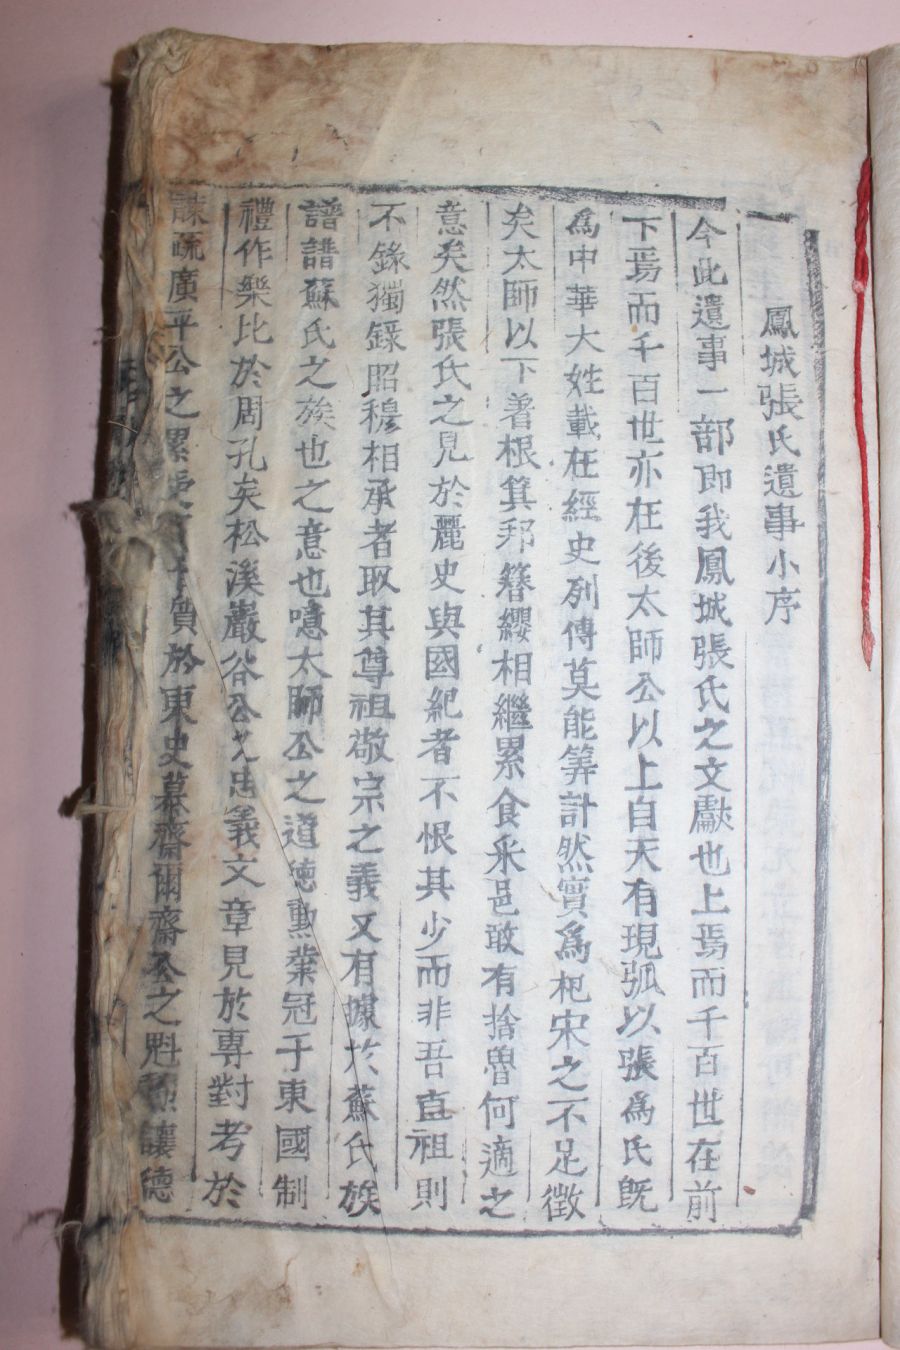 鳳城張氏遺事小序
今此遺事一部即我鳳城張氏之文獻也上焉而千百世在前
下焉而千百世亦在後太師公以上自天有現弧以張爲氏旣
爲中華大姓載在經史列傳莫能筭計然實爲杞宋之不足徵
矣太師以下着根箕邦簪纓相繼累食采邑敢有捨魯何適之
意矣然張氏之見於麗史與國紀者不恨其少而非吾直祖則
不錄獨錄昭穆相承者取其尊祖敬宗之義又有據於蘇氏族
譜譜蘇氏之族也之意也噫太師公之道德勲業冠于東國制
禮作樂比於周孔矣松溪巖谷公之忠義文章見於專對考於
諫疏廣平公之累 質於東史慕齋爾齋公之魁 讓德